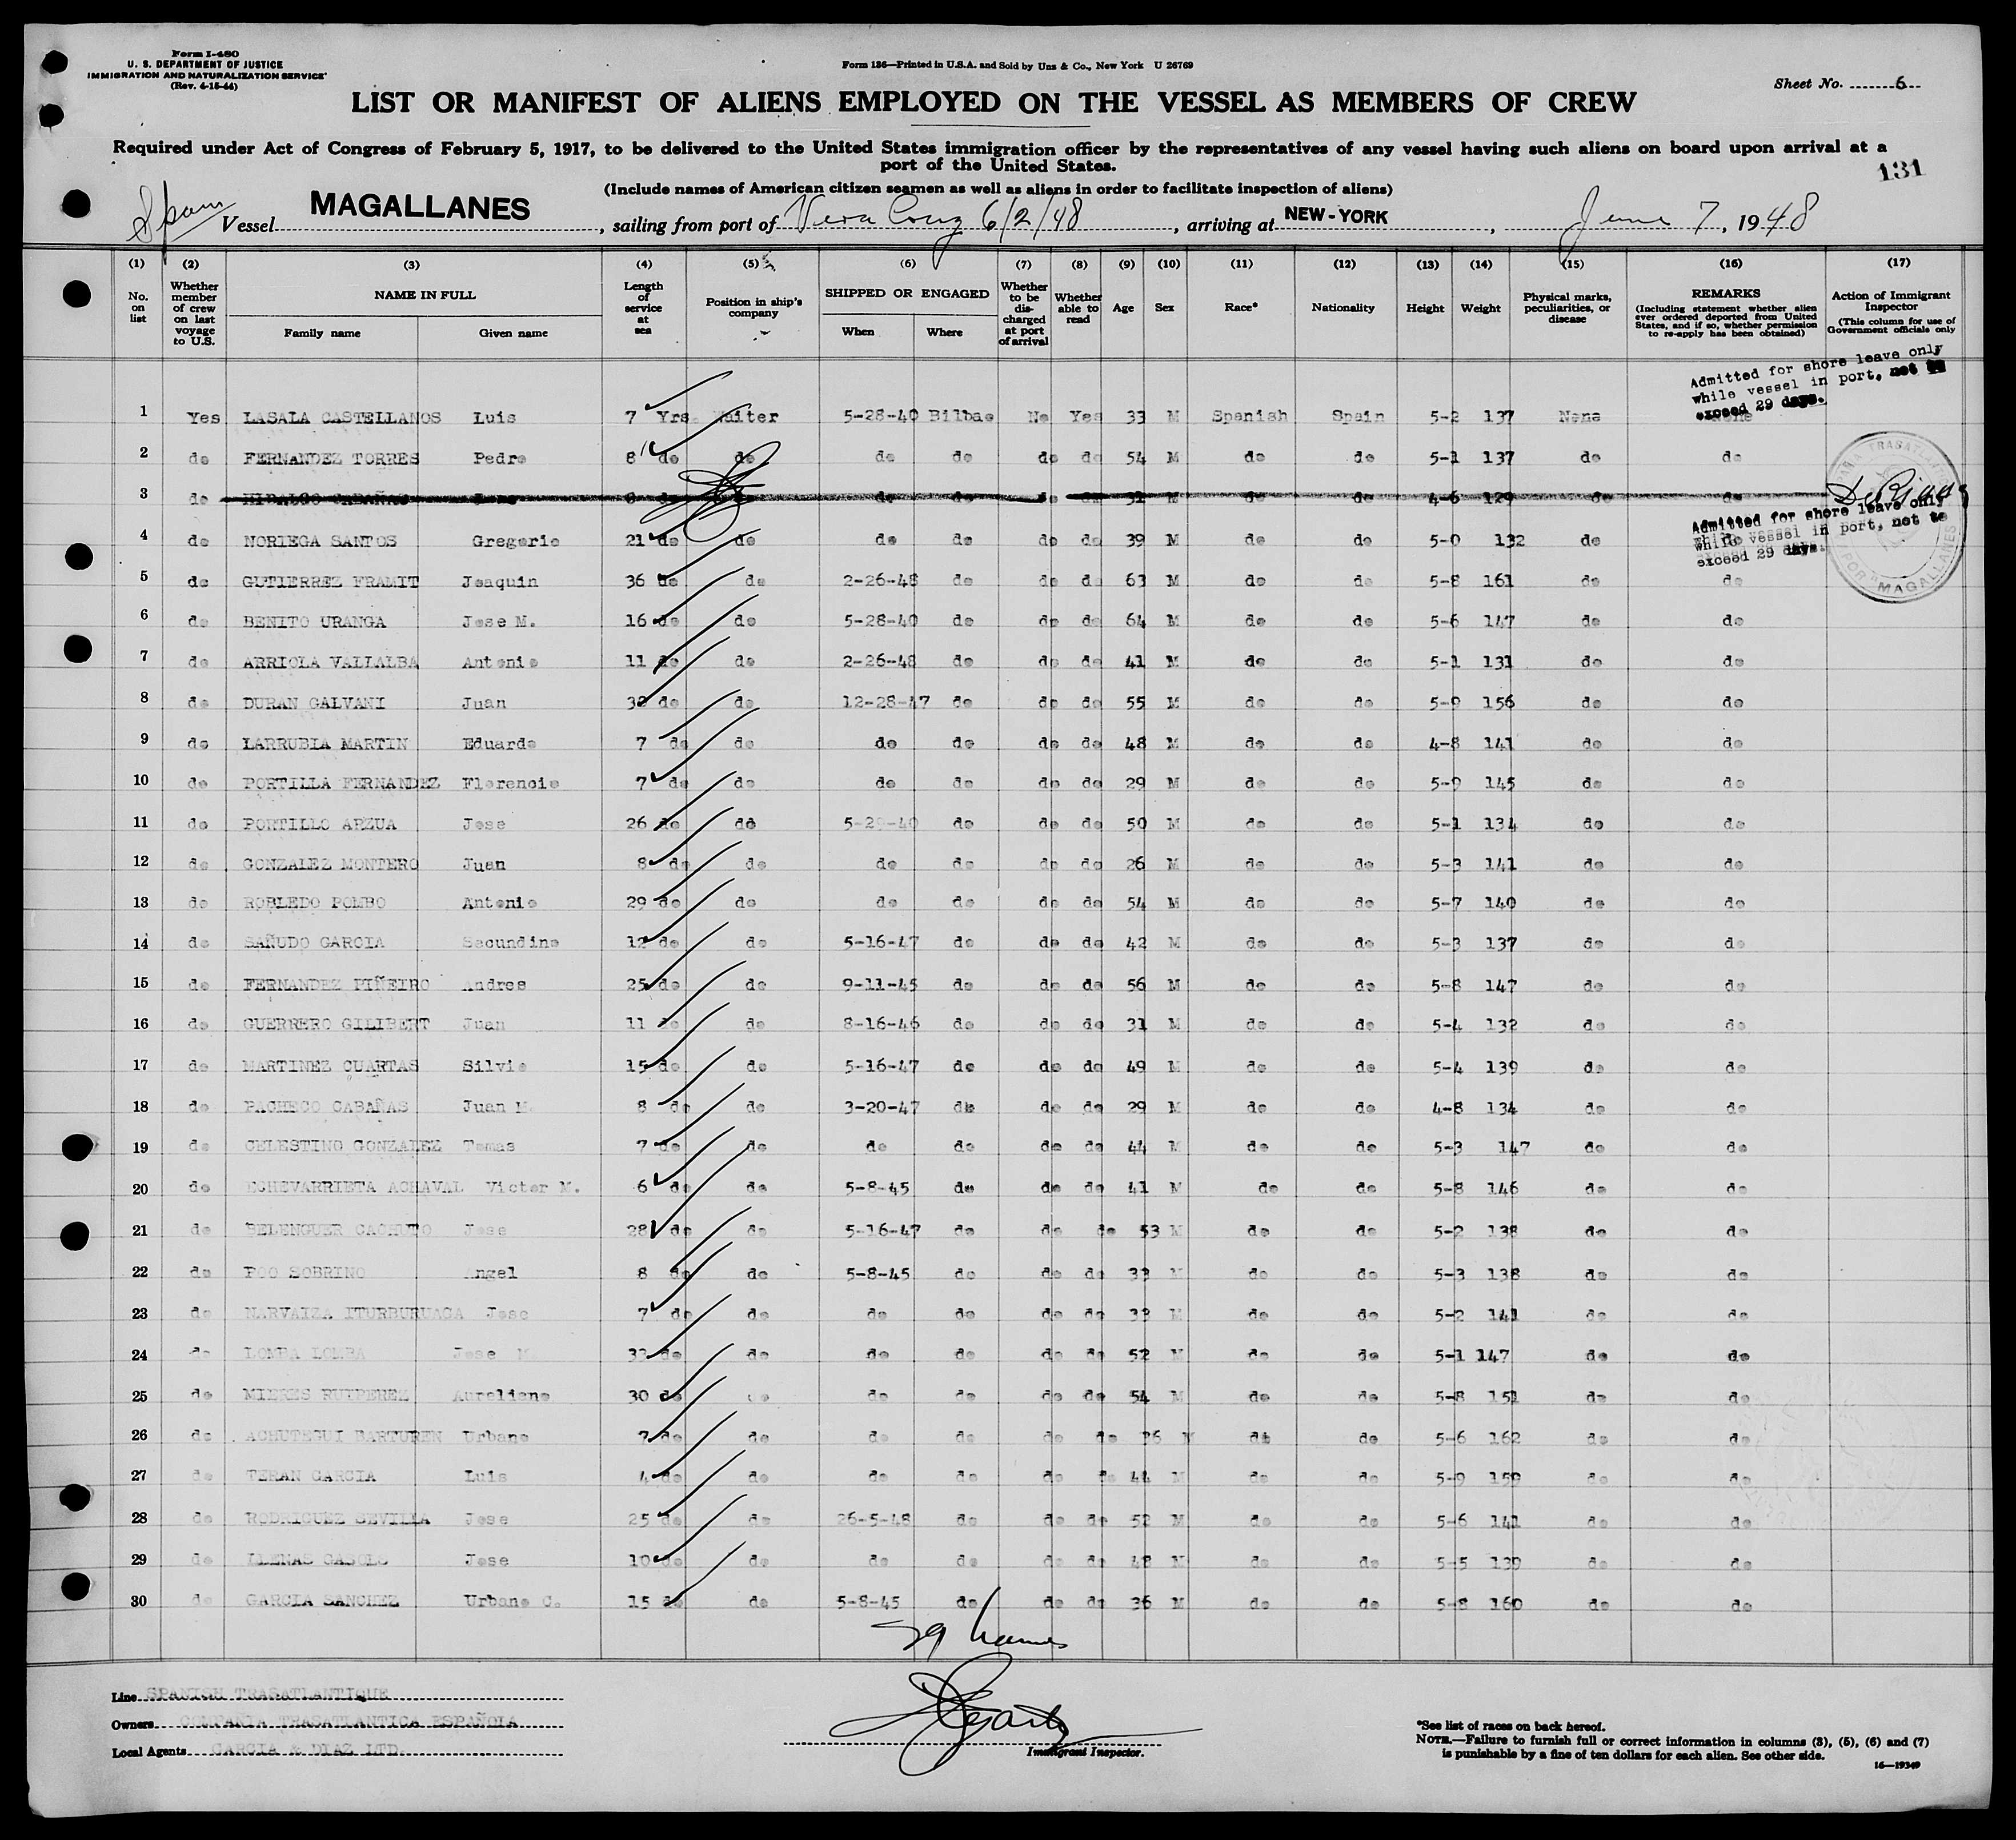 Form I-480
U. S. DEPARTMENT OF JUSTICE
IMMIGRATION AND NATURALIZATION SERVICE
(Rev. 4-15-44)
Form 136—Printed in U.S.A. and Sold by Unz & Co., New York U 26769
Sheet No. 6
LIST OR MANIFEST OF ALIENS EMPLOYED ON THE VESSEL AS MEMBERS OF CREW
Required under Act of Congress of February 5, 1917, to be delivered to the United States immigration officer by the representatives of any vessel having such aliens on board upon arrival at a
port of the United States.
131
(Include names of American citizen seamen as well as aliens in order to facilitate inspection of aliens)
Span Vessel MAGALLANES, sailing from port of Vera Cruz 6/2/48, arriving at NEW-YORK, June 7, 1948
(1) No. on list
(2) Whether member of crew on last voyage to U.S.
(3) NAME IN FULL Family name Given name
(4) Length of service at sea
(5) Position in ship's company
(6) SHIPPED OR ENGAGED When Where
(7) Whether to be discharged at port of arrival
(8) Whether able to read
(9) Age
(10) Sex
(11) Race*
(12) Nationality
(13) Height
(14) Weight
(15) Physical marks, peculiarities, or disease
(16) REMARKS (Including statement whether alien ever ordered deported from United States, and if so, whether permission to re-apply has been obtained)
(17) Action of Immigrant Inspector (This column for use of Government officials only
Admitted for shore leave only
while vessel in port, not to
exceed 29 days.
1 Yes LASALA CASTELLANOS Luis 7 Yrs Waiter 5-28-40 Bilbao No Yes 33 M Spanish Spain 5-2 137 None None
2 do FERNANDEZ TORRES Pedro 8 do do do do do do 54 M do do 5-1 137 do do
3 do HIDALGO CABAÑAS do do do 31 M do do 4-6 129 do do
Admitted for shore leave only
while vessel in port, not to
exceed 29 days.
MAGALLANES
4 do NORIEGA SANTOS Gregorio 21 do do do do do do 39 M do do 5-0 132 do do
5 do GUTIERREZ FRAMIT Joaquin 36 do do 2-26-48 do do do 63 M do do 5-8 161 do do
6 do BENITO URANGA Jose M. 16 do do 5-28-40 do do do 64 M do do 5-6 147 do do
7 do ARRIOLA VALLALBA Antonio 11 do do 2-26-48 do do do 41 M do do 5-1 131 do do
8 do DURAN GALVANI Juan 32 do do 12-28-47 do do do 55 M do do 5-9 156 do do
9 do LARRUBIA MARTIN Eduardo 7 do do do do do do 48 M do do 4-8 141 do do
10 do PORTILLA FERNANDEZ Florencio 7 do do do do do do 29 M do do 5-9 145 do do
11 do PORTILLO ARZUA Jose 26 do do 5-29-40 do do do 50 M do do 5-1 134 do do
12 do GONZALEZ MONTERO Juan 8 do do do do do do 26 M do do 5-3 141 do do
13 do ROBLEDO POMBO Antonio 29 do do do do do do 54 M do do 5-7 140 do do
14 do SAÑUDO GARCIA Secundino 12 do do 5-16-47 do do do 42 M do do 5-3 137 do do
15 do FERNANDEZ PIÑEIRO Andres 25 do do 9-11-45 do do do 56 M do do 5-8 147 do do
16 do GUERRERO GILIBERT Juan 11 do do 8-16-46 do do do 31 M do do 5-4 132 do do
17 do MARTINEZ CUARTAS Silvio 15 do do 5-16-47 do do do 49 M do do 5-4 139 do do
18 do PACHECO CABAÑAS Juan M. 8 do do 3-20-47 do do do 29 M do do 4-8 134 do do
19 do CELESTINO GONZALEZ Tomas 7 do do do do do do 44 M do do 5-3 147 do do
20 do ECHEVARRIETA ACHAVAL Victor M. 6 do do 5-8-45 do do do 41 M do do 5-8 146 do do
21 do BELENGUER CACHUTO Jose 28 do 5-16-47 do do do 53 M do do 5-2 138 do do
22 do POO SOBRINO Angel 8 do do 5-8-45 do do do 33 M do do 5-3 138 do do
23 do NARVAIZA ITURBURUAGA Jose 7 do do do do do do 33 M do do 5-2 141 do do
24 do LOMBA LOMBA Jose M. 33 do do do do do do 52 M do do 5-1 147 do do
25 do MIERES RUIPEREZ Aureliano 30 do do do do do do 54 M do do 5-8 151 do do
26 do ACHUTEGUI BARTUREN Urbano 7 do do do do do do 36 M do do 5-6 162 do do
27 do TERAN GARCIA Luis 4 do do do do do do 44 M do do 5-9 159 do do
28 do RODRIGUEZ SEVILLA Jose 25 do do 26-5-48 do do do 52 M do do 5-6 141 do do
29 do LLENAS CASOLS Jose 10 do do do do do do 48 M do do 5-5 139 do do
30 do GARCIA SANCHEZ Urbano C. 15 do do 5-8-45 do do do 36 M do do 5-8 160 do do
29 names
Line SPANISH TRASATLANTIQUE
Owners COMPAÑIA TRASATLANTICA ESPAÑOLA
Local Agents GARCIA & DIAZ LTD.
Immigrant Inspector.
*See list of races on back hereof.
NOTE.—Failure to furnish full or correct information in columns (3), (5), (6) and (7)
is punishable by a fine of ten dollars for each alien. See other side.
16—19349